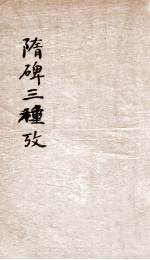 隋碑三種攷